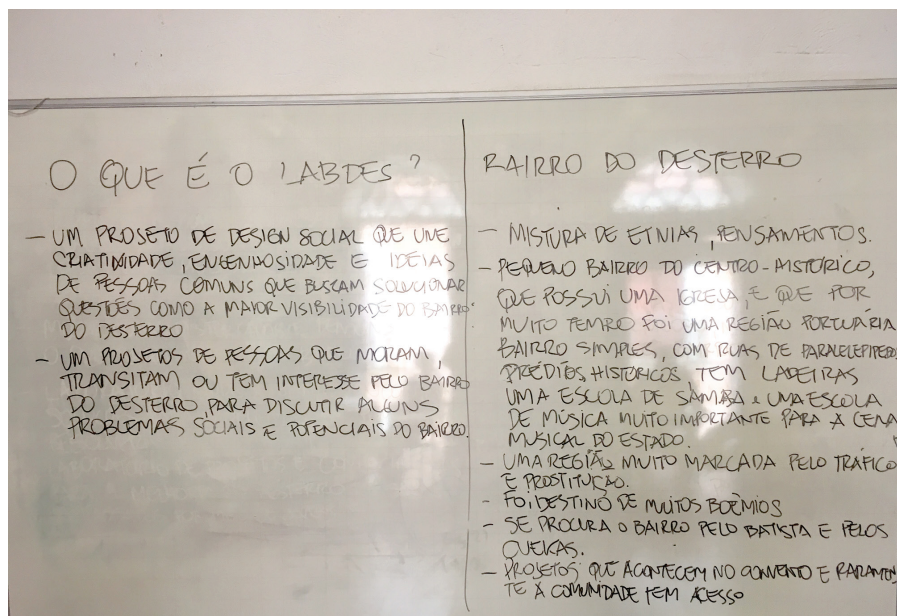 O QUE É O LABDES?
— UM PROJETO DE DESIGN SOCIAL QUE UNE
CRIATIVIDADE, ENGENHOSIDADE E IDÉIAS
DE PESSOAS COMUNS QUE BUSCAM SOLUCIONAR
QUESTÕES COMO A MAIOR VISIBILIDADE DO BAIRRO
DO DESTERRO
— UM PROJETOS DE PESSOAS QUE MORAM,
TRANSITAM OU TEM INTERESSE PELO BAIRRO
DO DESTERRO, PARA DISCUTIR ALGUNS
PROBLEMAS SOCIAIS E POTENCIAIS DO BAIRRO.
BAIRRO DO DESTERRO
— MISTURA DE ETNIAS, PENSAMENTOS.
— PEQUENO BAIRRO DO CENTRO-HISTÓRICO,
QUE POSSUI UMA IGREJA, E QUE POR
MUITO TEMPO FOI UMA REGIÃO PORTUÁRIA
BAIRRO SIMPLES, COM RUAS DE
PRÉDIOS HISTÓRICOS, TEM LADEIRAS
UMA ESCOLA DE SAMBA E UMA ESCOLA
DE MÚSICA MUITO IMPORTANTE PARA A CENA
MUSICAL DO ESTADO.
— UMA REGIÃO MUITO MARCADA PELO TRÁFICO
E PROSTITUIÇÃO.
— FOI DESTINO DE MUITOS BOÊMIOS
— SE PROCURA O BAIRRO PELO BATISTA E PELOS
— PROJETOS QUE ACONTECEM NO CONVENTO E RARAMEN
TE A COMUNIDADE TEM ACESSO